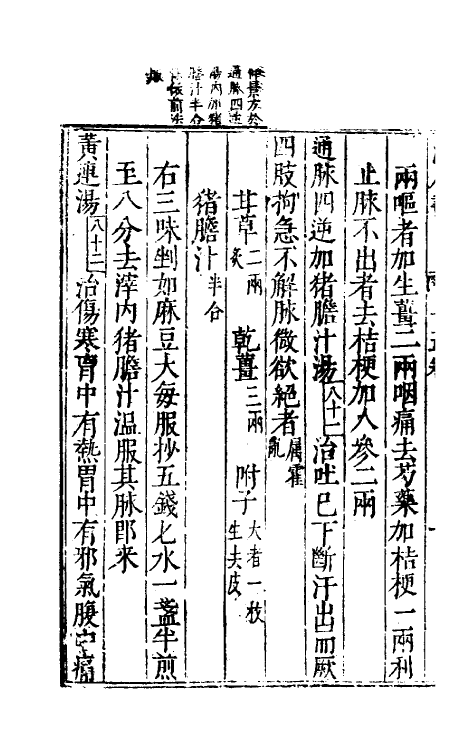 仲景方於
通脉四逆
湯内加猪
膽汁半合
煎依前法
兩嘔者加生薑二兩咽痛去芍藥加桔梗一兩利
止脉不出者去桔梗加人參二兩
通脉四逆加猪膽汁湯八十二治吐已下斷汗出而厥
四肢拘急不解脉微欲絕者屬霍亂
甘草二兩炙 乾薑三兩 附子大者一枚生去皮
猪膽汁半合
右三味剉如麻豆大每服抄五錢匕水一盞半煎
至八分去滓内猪膽汁温服其脉即来
黃連湯八十二治傷寒胃中有熱胃中有邪氣腹中痛